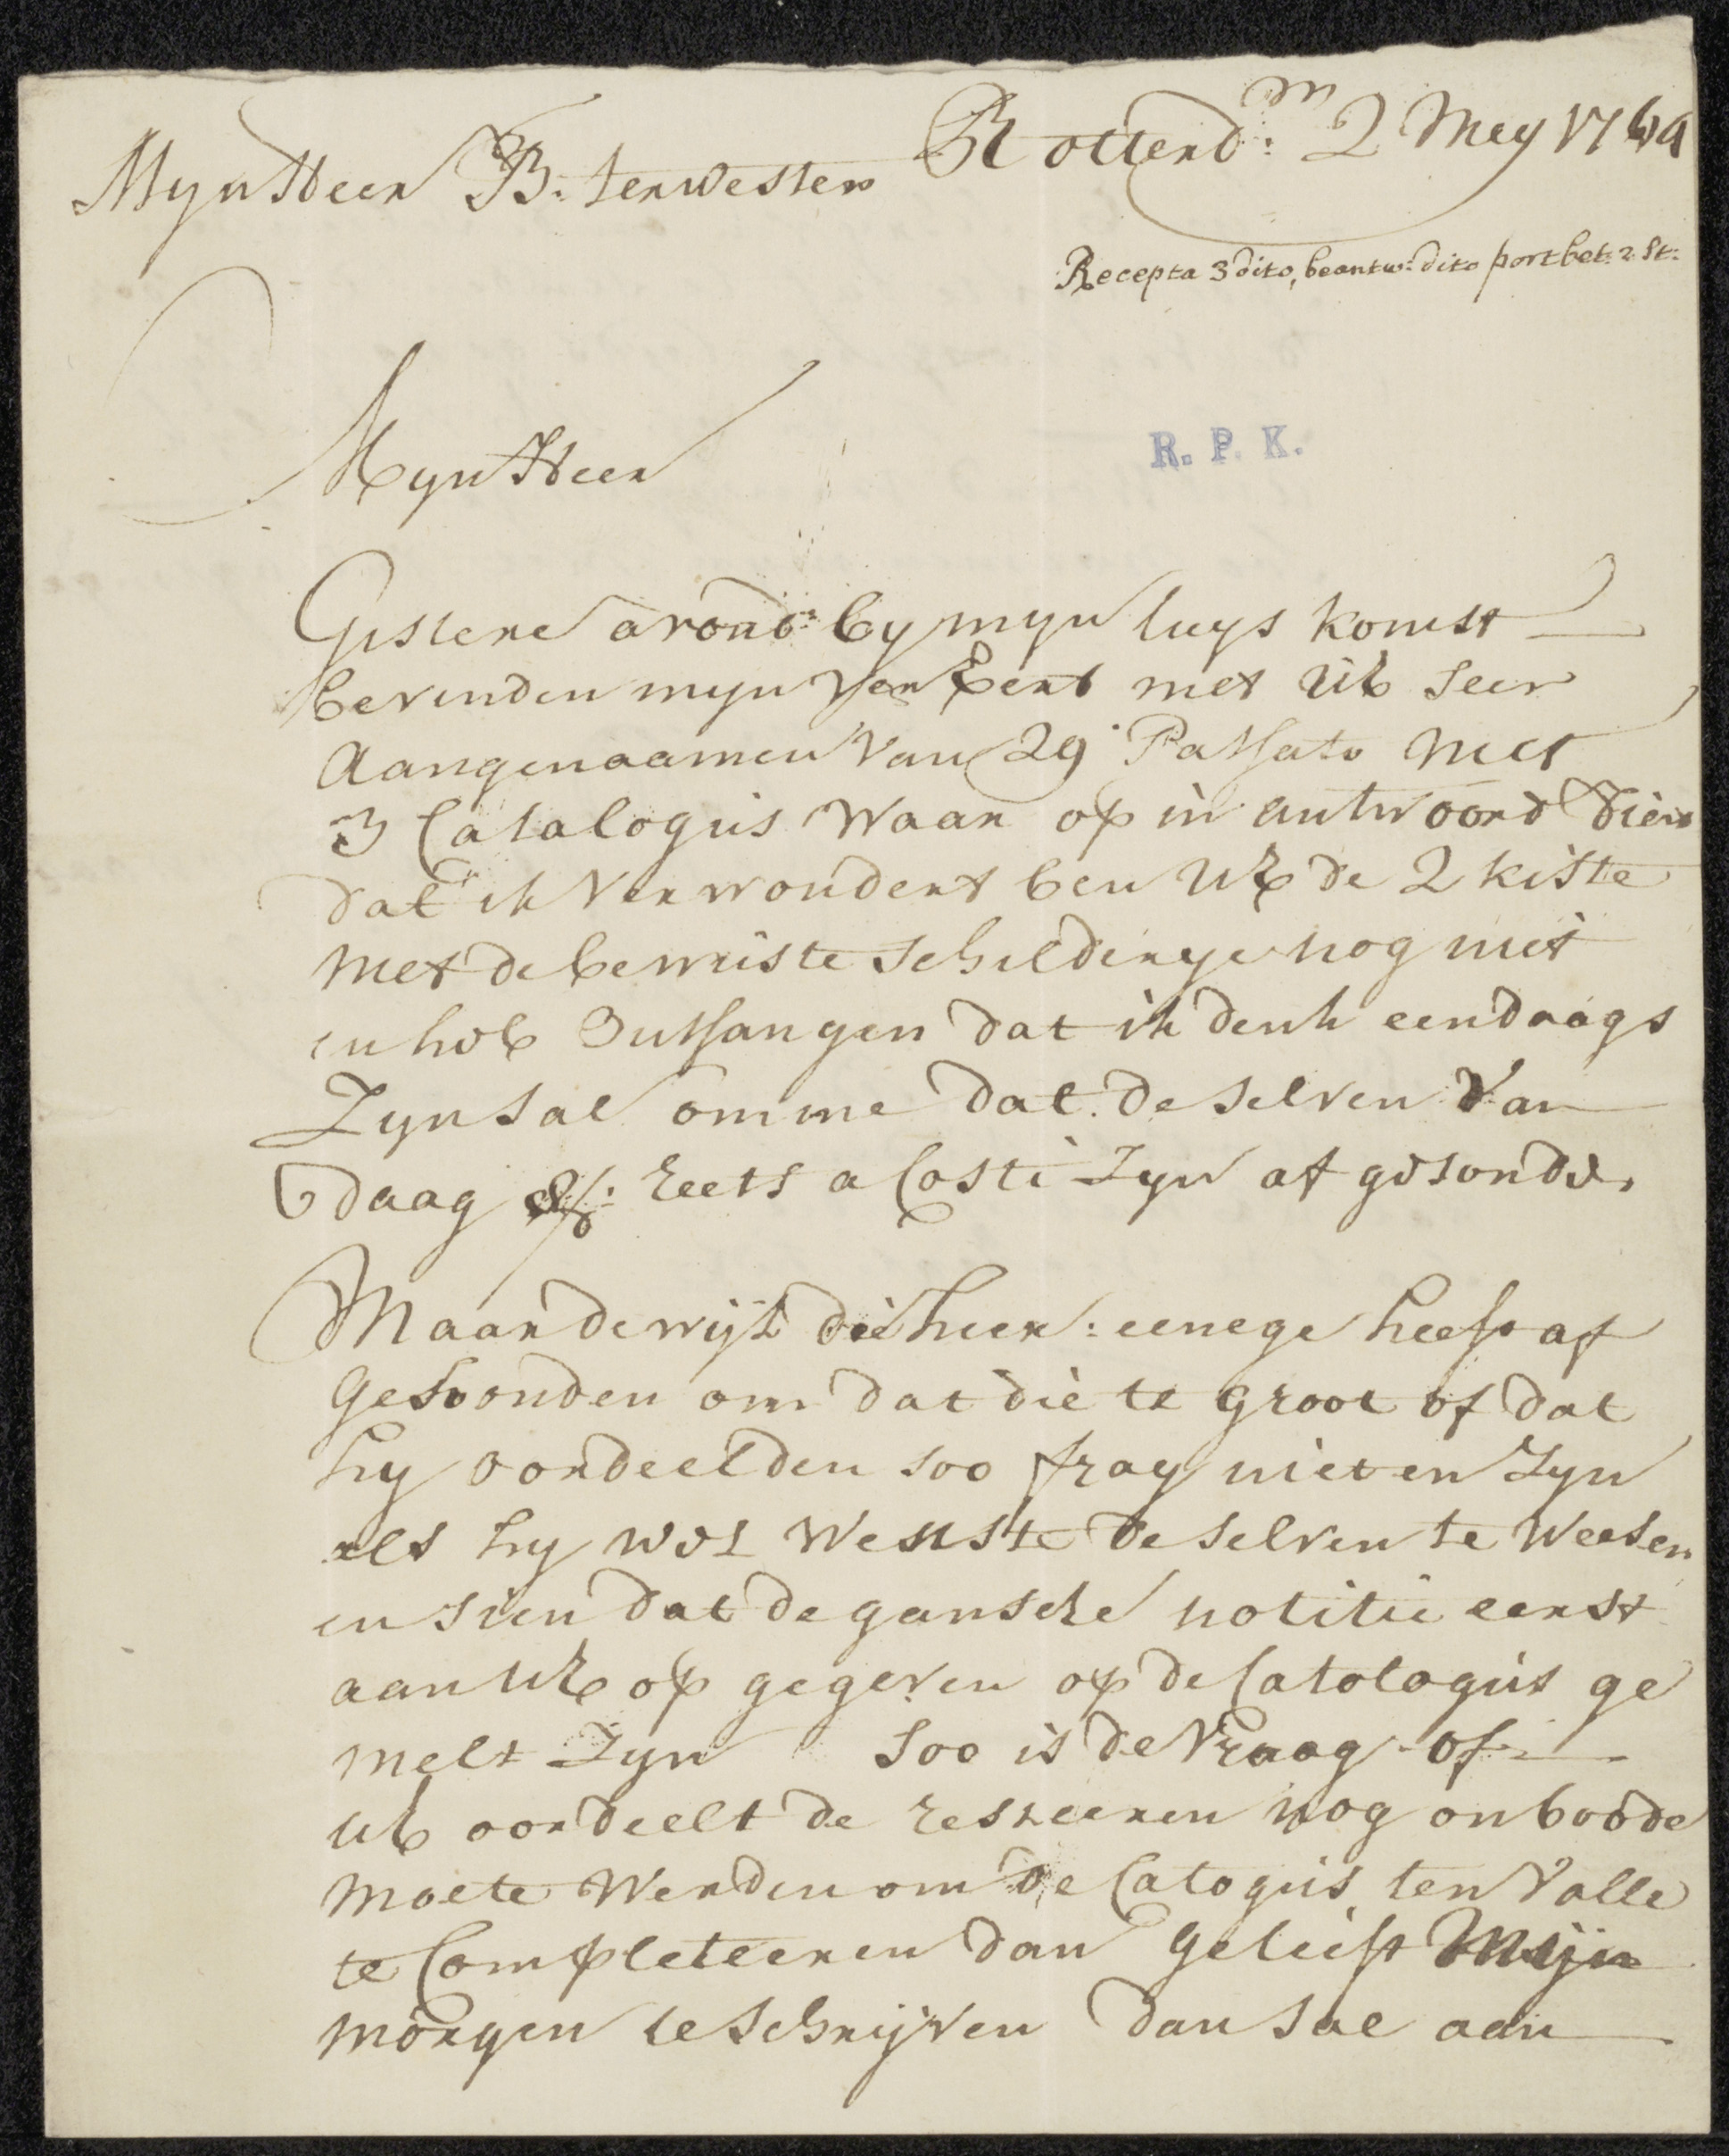 Rotterd:m 2 Mey 1769
Myn Heer B: terwesten
Recepta 3 dito, beantw: dito port bet: 2 St:
R. P. K.
Myn Heer
Gistere avond by myn huys komst
bevinden myn verEert met UE seer
Aangenaamen van 29 Passato met
3 Catalogus waar op in antwoord dien
dat ik verwondert ben UE de 2 kiste
met de bewuste schilderye nog niet
en heb ontfangen dat ik denk eendaags
Zyn sal omme dat de selven van
daag reets a Costi Zyn af gesonde.
Maar dewijl die heer: eenege heeft af
Gesonden om dat die te groot of dat
hy oordeelden soo fray niet en Zyn
als hy wel wenste de selven te weesen
en sien dat de gansche notitie eerst
aan UE op gegeven op de Catologus ge
melt Zyn soo is de vraag of
UE oordeelt de resteeren nog onboode
moete werden om de Catogus ten volle
te Completeeren dan gelieft Mijn
morgen te schrijven dan sal aan